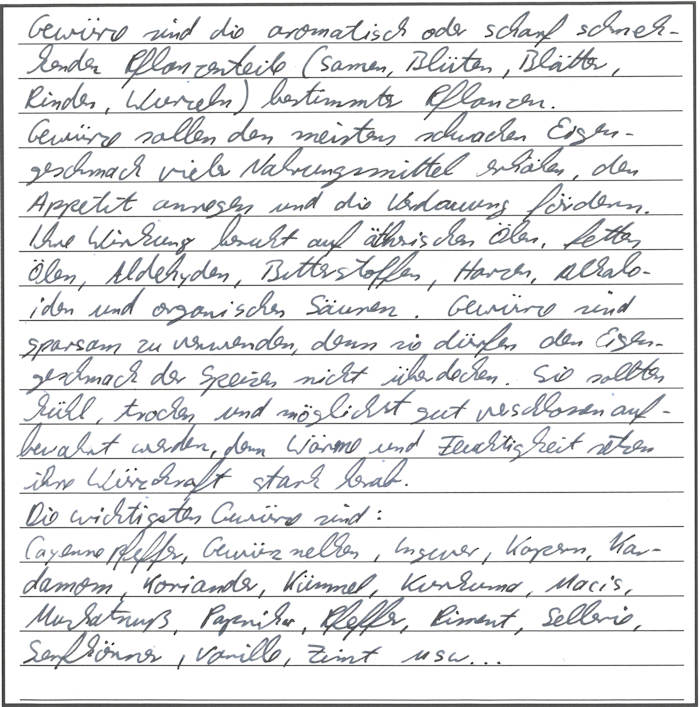 Gewürze sind die aromatisch oder scharf schmek-
kenden Pflanzenteile (Samen, Blüten, Blätter,
Rinden, Wurzeln) bestimmter Pflanzen.
Gewürze sollen den meistens schwachen Eigen-
geschmack vieler Nahrungsmittel erhöhen, den
Appetit anregen und die Verdauung fördern.
Ihre Wirkung beruht auf ätherischen Ölen, fetten
Ölen, Aldehyden, Bitterstoffen, Harzen, Alkalo-
iden und organischen Säuren. Gewürze sind
sparsam zu verwenden, denn sie dürfen den Eigen-
geschmack der Speisen nicht überdecken. Sie sollten
kühl, trocken und möglichst gut verschlossen auf-
bewahrt werden, denn Wärme und Feuchtigkeit setzen
ihre Würzkraft stark herab.
Die wichtigsten Gewürze sind:
Cayennepfeffer, Gewürznelken, Ingwer, Kapern, Kar-
damom, Koriander, Kümmel, Kurkuma, Macis,
Muskatnuß, Paprika, Pfeffer, Piment, Sellerie,
Senfkörner, Vanille, Zimt usw...